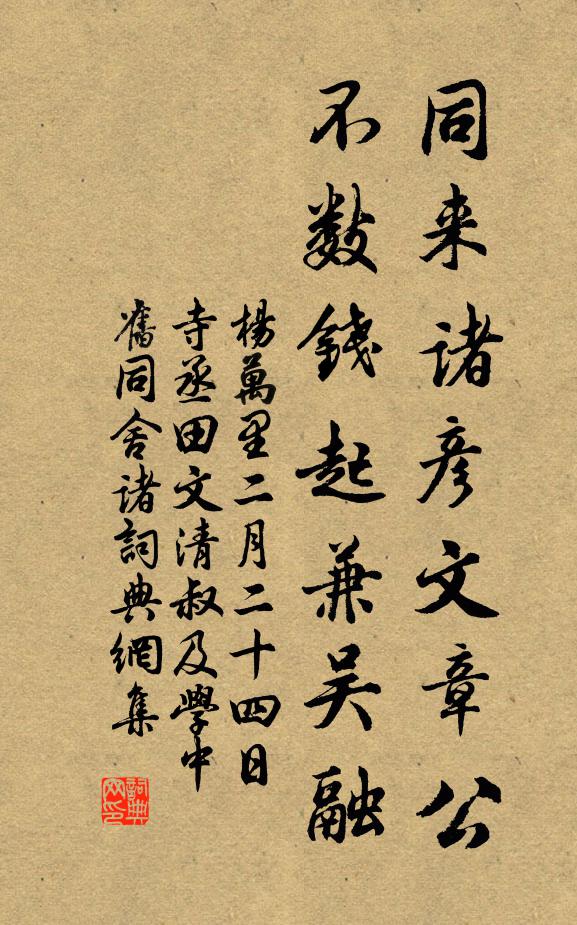 同来诸彦文章公
不数錢起兼吴融
楊萬里二月二十四日
寺丞田文清叔及學中
舊同舍诸詞典網集
詞典
网印